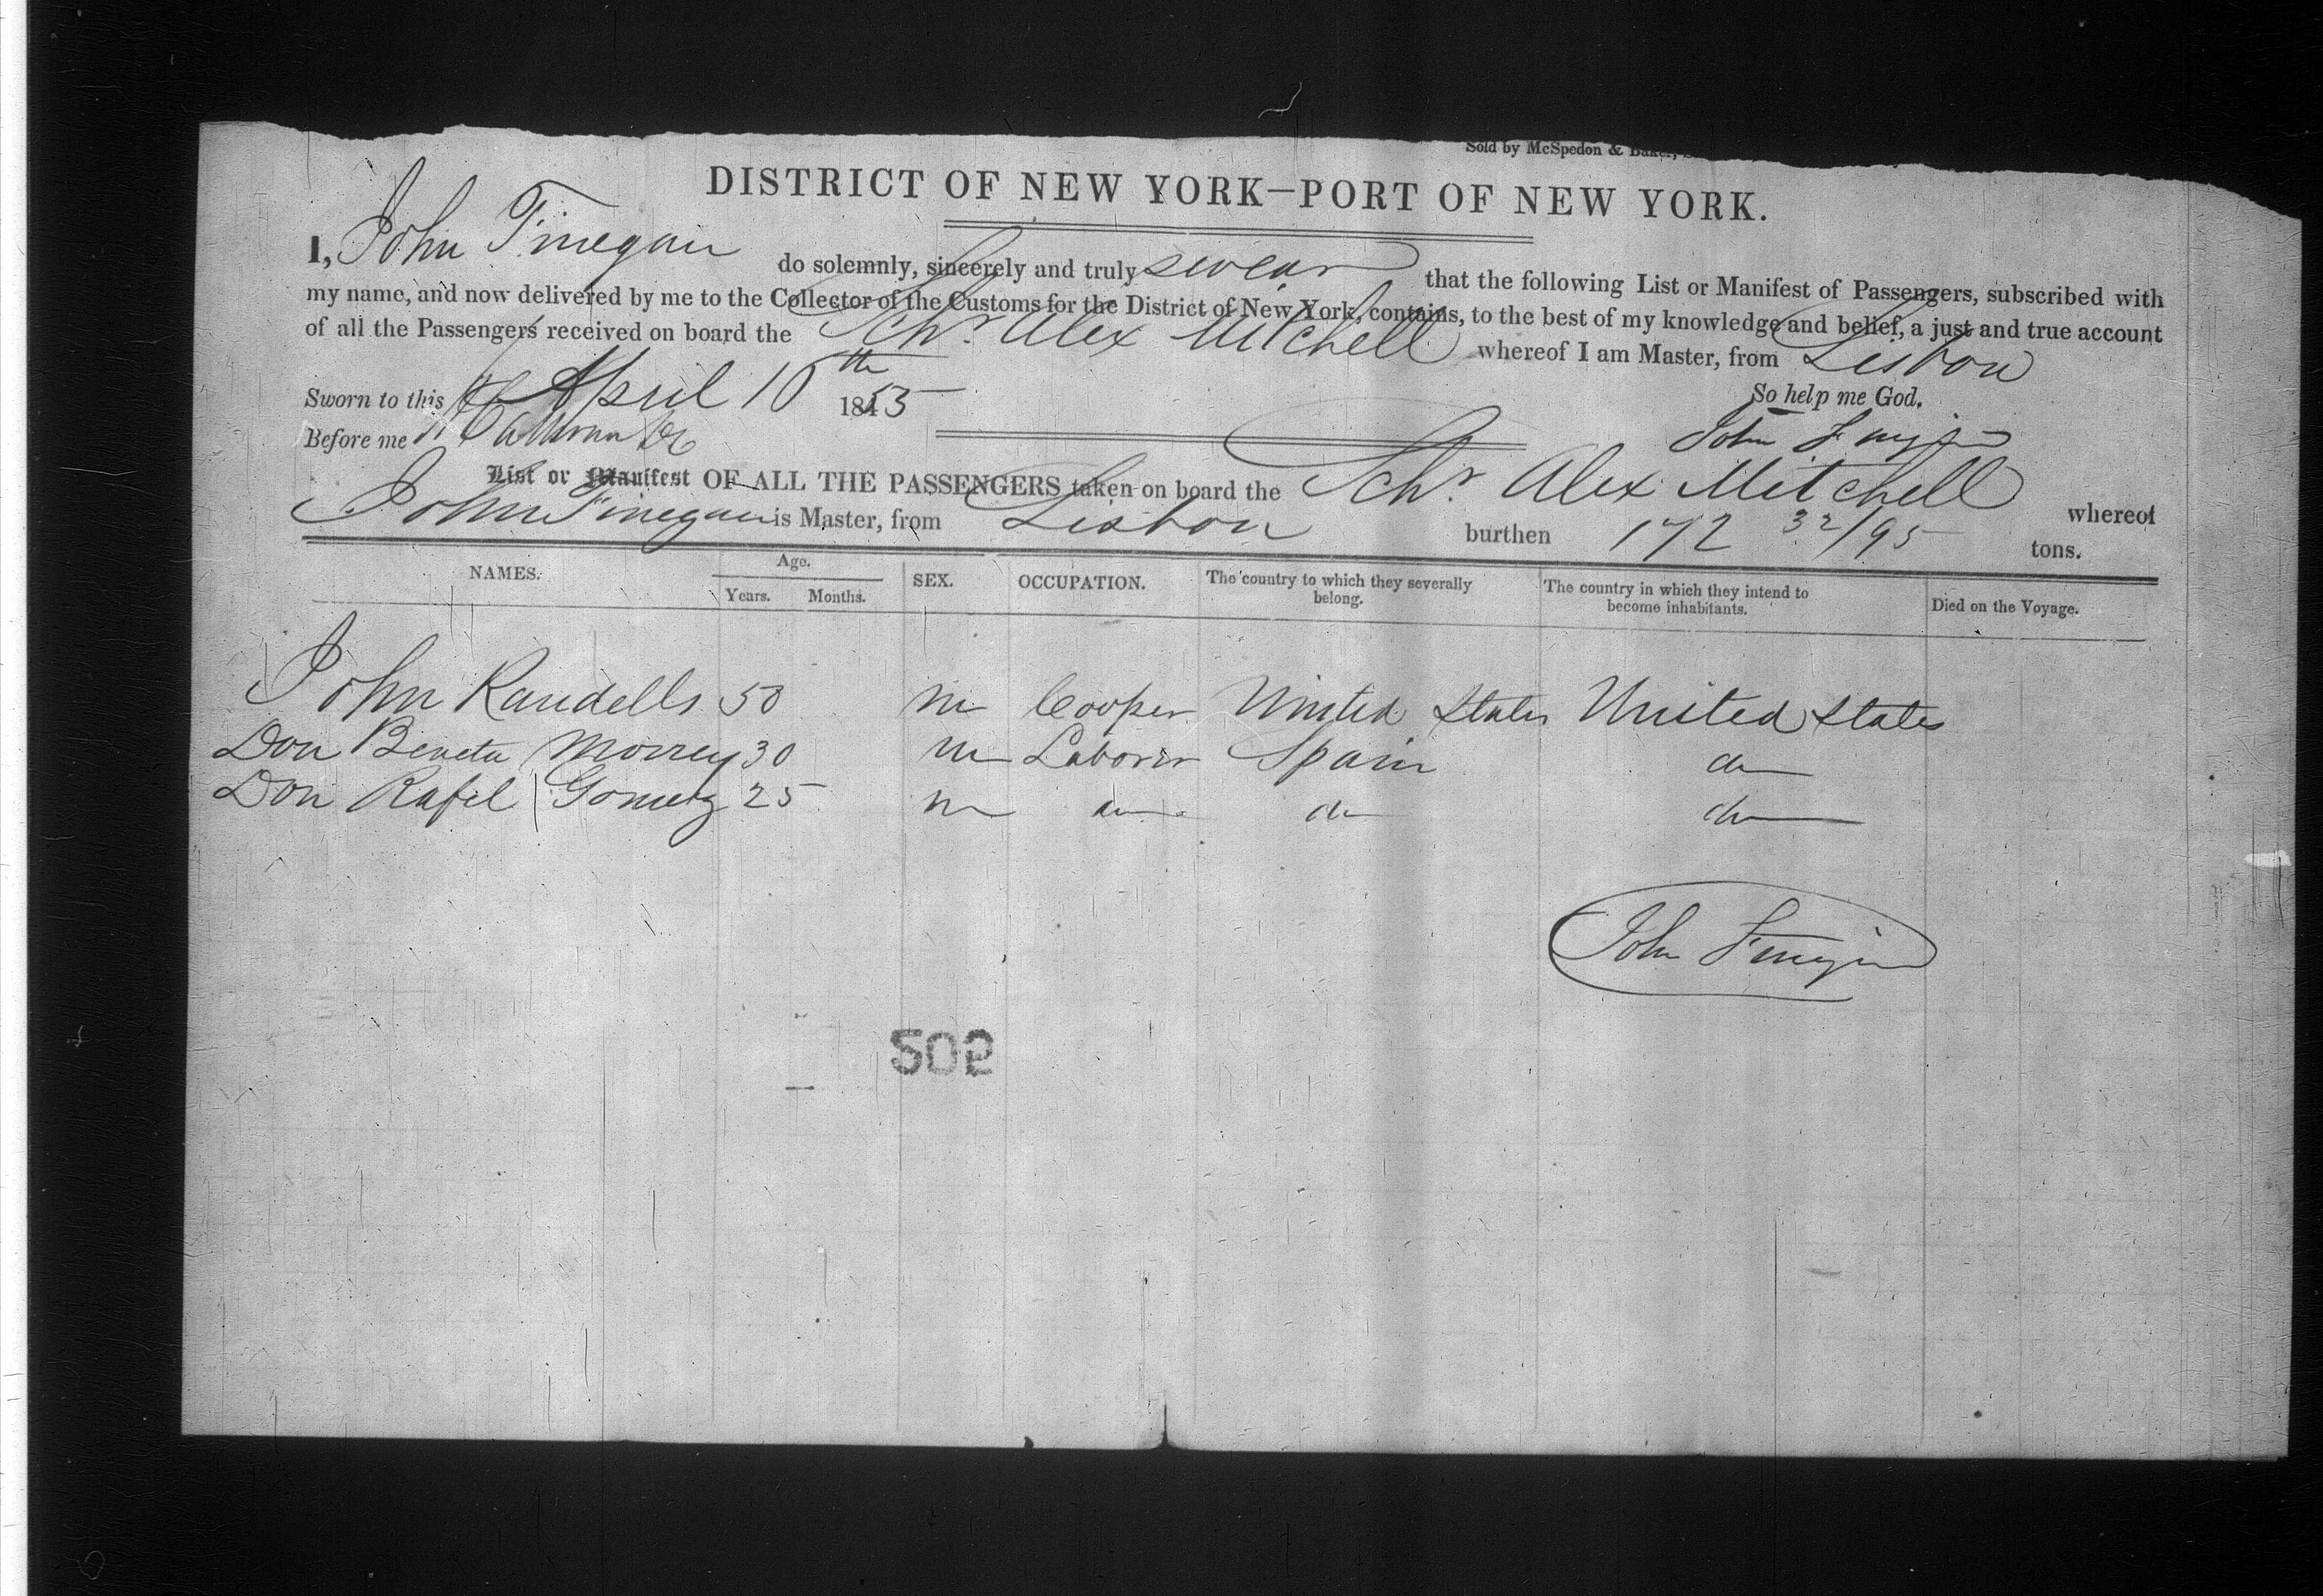 Sold by McSpedon & Baker,
DISTRICT OF NEW YORK—PORT OF NEW YORK.
I, John Finegan do solemnly, sincerely and truly swear that the following List or Manifest of Passengers, subscribed with
my name, and now delivered by me to the Collector of the Customs for the District of New York, contains, to the best of my knowledge and belief, a just and true account
of all the Passengers received on board the Schr. Alex Mitchell whereof I am Master, from Lisbon
Sworn to this April 16th 1853 So help me God.
Before me John Finegan
List or Manifest OF ALL THE PASSENGERS taken on board the Schr Alex Mitchell whereof
John Finegan is Master, from Lisbon burthen 172 32/95 tons.
NAMES. Age. Years. Months. SEX. OCCUPATION. The country to which they severally belong. The country in which they intend to become inhabitants. Died on the Voyage.
John Randells 50 m Cooper United States United States
Don Beneta Morrey 30 m Laborer Spain do
Don Rafel Gomez 25 m do do do
John Finegan
502